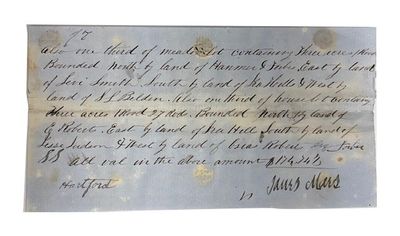 Also one third of meadow lot containing three acres &
Bounded North by land of Hanmer & Wales East by land
of Levi Smith, South by land of Ira Hills & West by
land of S L Belden. Also one third of house lot containing
three acres 27 rods. Bounded North by land of
E Robert. East by land of Ira Hill South by land of
Jesse Judson & West by land of Robert
SS all val in the above amount
Hartford James Mars